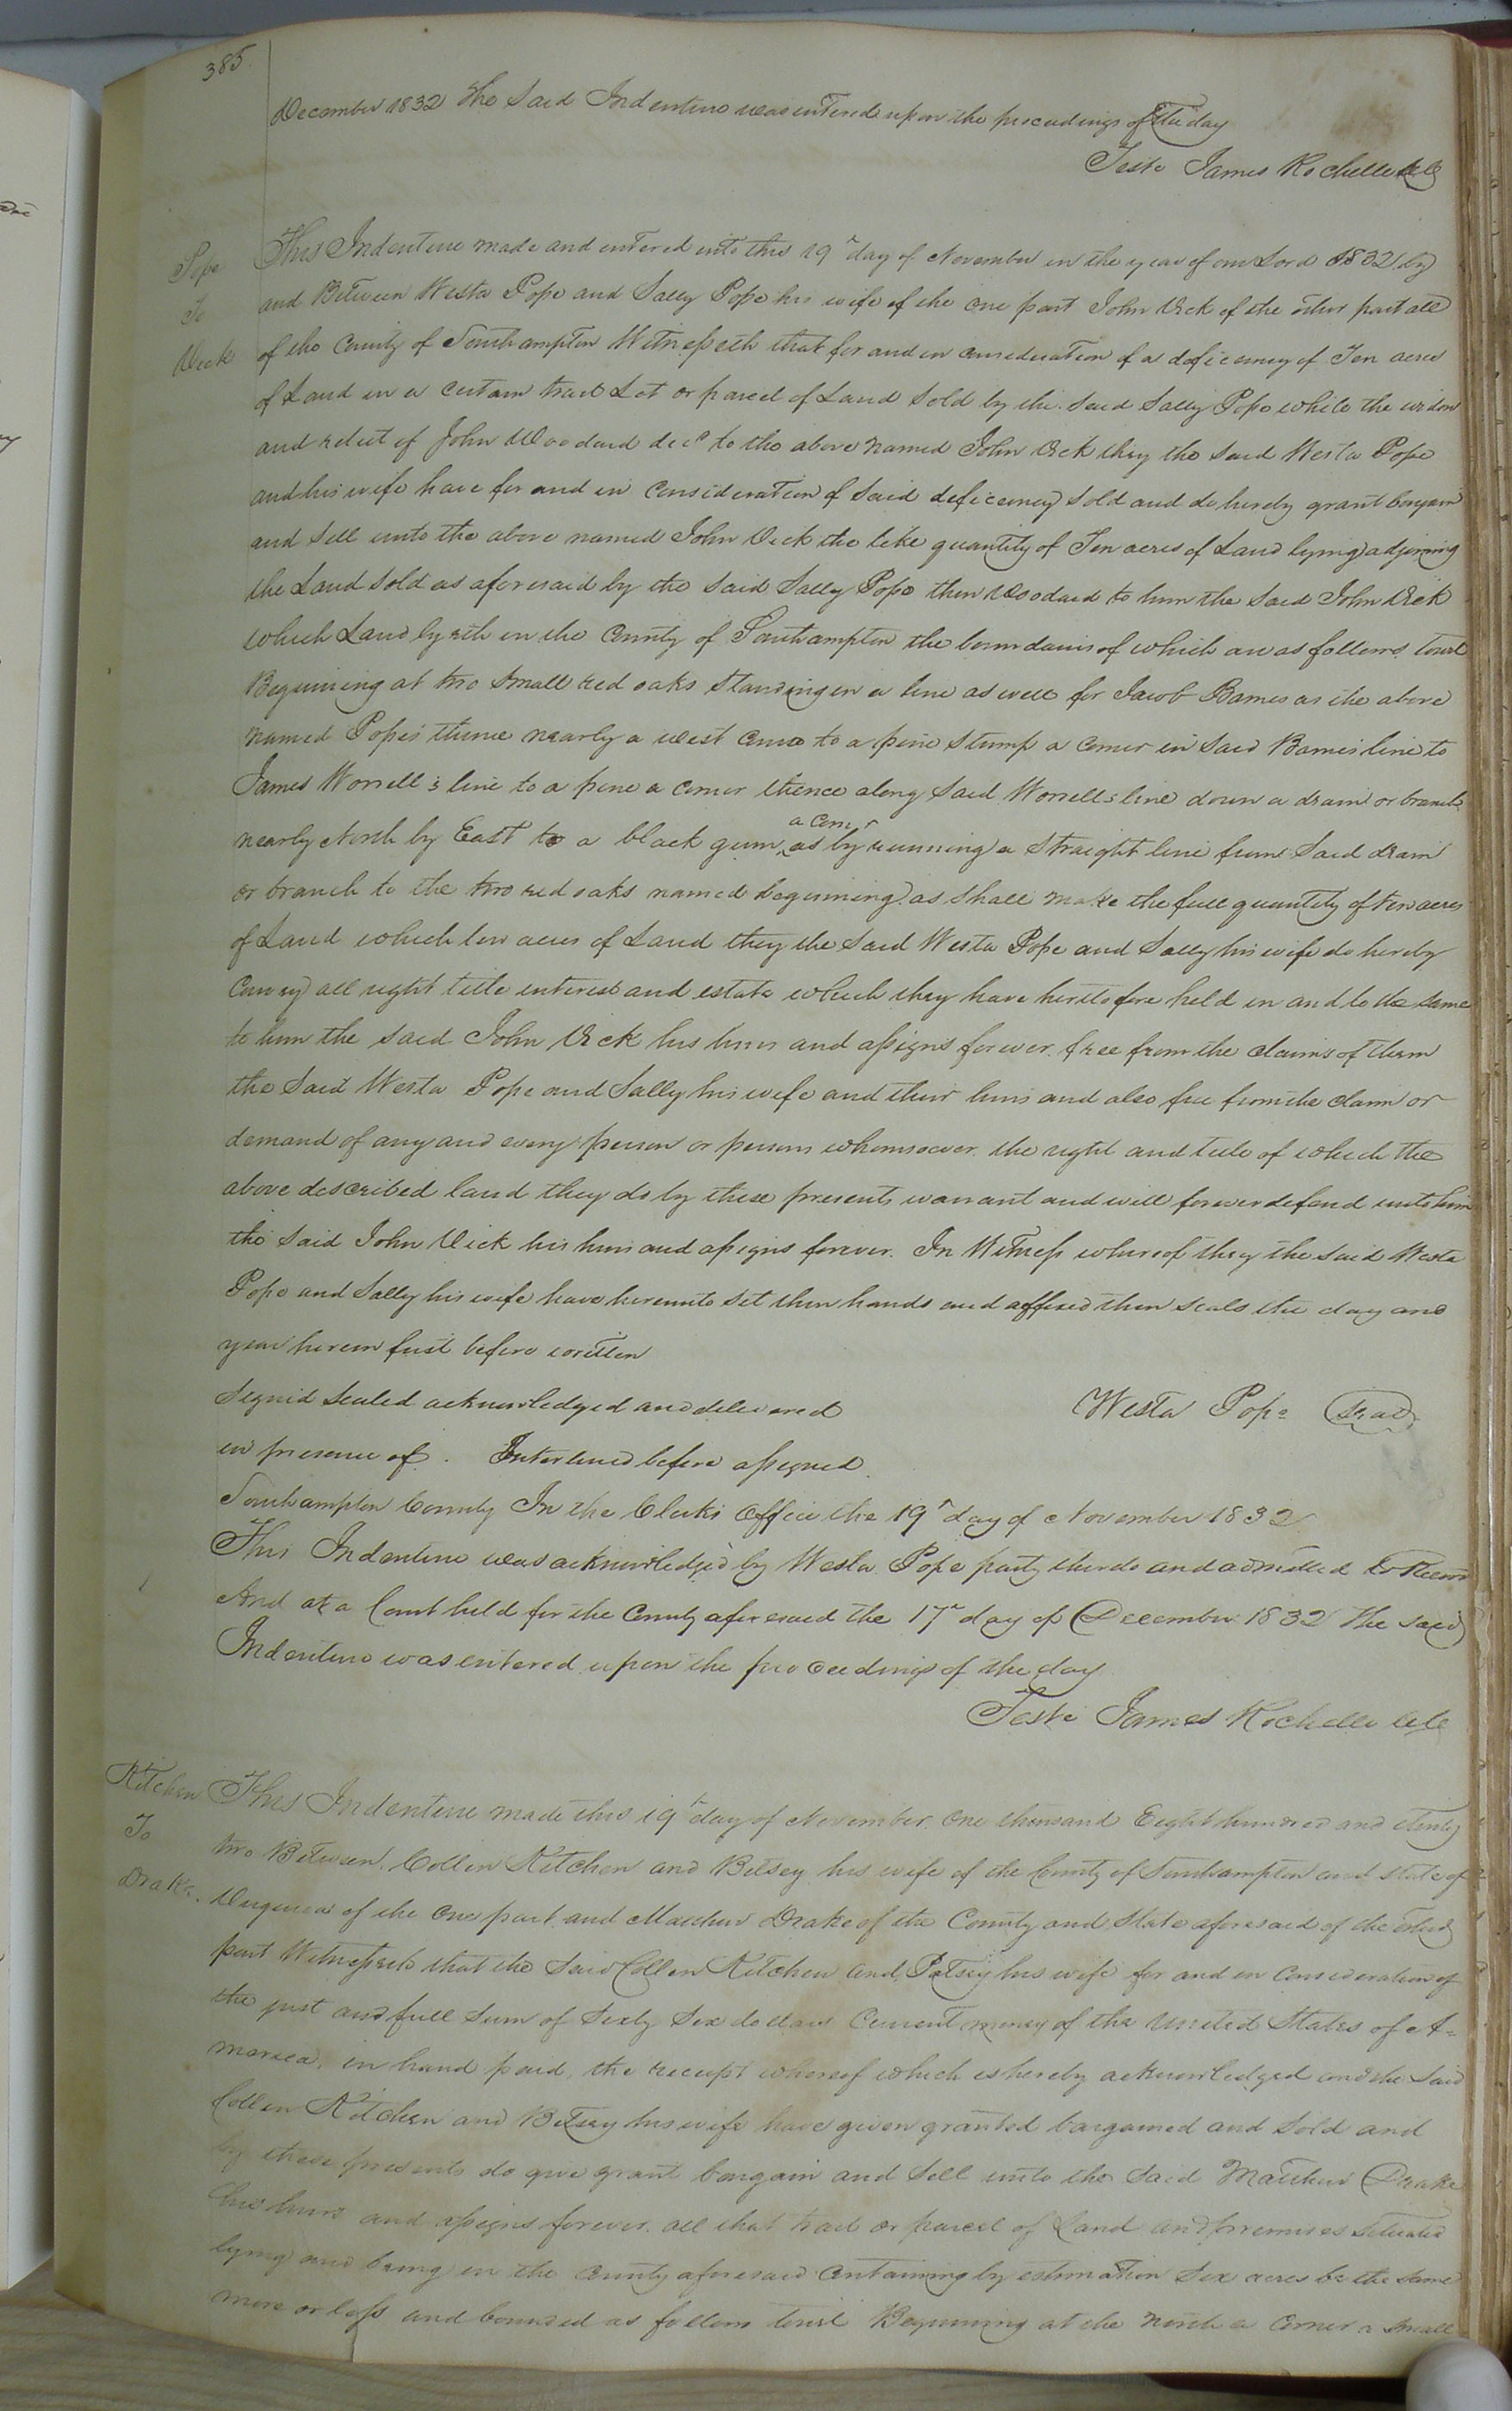 385
December 1832 The Said Indenture was entered upon the proceedings of the day
Teste James Rochelle Clk
Pope
To
Vick
This Indenture made and entered into this 19th day of November in the year of our Lord 1832 by
and Between Westa Pope and Sally Pope his wife of the one part John Vick of the other part all
of the County of Southampton Witnesseth that for and in consideration of a deficeincy of Ten acres
of Land in a certain tract Lot or parcel of Land Sold by the Said Sally Pope while the widow
and relict of John Woodard decd to the above named John Vick they the said Westa Pope
and his wife have for and in Consideration of Said deficeincy Sold and do hereby grant bargain
and Sell unto the above named John Vick the like quantity of Ten acres of Land lying adjoining
the Land Sold as aforesaid by the Said Sally Pope then Woodard to him the Said John Vick
which Land lyeth in the County of Southampton the boundaries of which are as follows towit
Beginning at two Small red oaks Standing in a line as well for Jacob Barnes as the above
named Pope's thence nearly a west Course to a pine Stump a Corner in Said Barnes line to
James Worrell's line to a pine a Corner thence along Said Worrell's line down a drain or branch
nearly North by East to a black gum a Corner as by running a Straight line from Said drain
or branch to the two red oaks named beginning as Shall make the full quantity of ten acres
of Land which ten acres of Land they the Said Westa Pope and Sally his wife do hereby
Convey all right title interest and estate which they have heretofore held in and to the Same
to him the Said John Vick his heirs and assigns forever free from the claims of them
the Said Westa Pope and Sally his wife and their heirs and also free from the claim or
demand of any and every person or persons whomsoever the right and title of which the
above described land they do by these presents warrant and will forever defend unto him
the Said John Vick his heirs and assigns forever. In Witness whereof they the Said Westa
Pope and Sally his wife have hereunto Set their hands and affixed their Seals the day and
year herein first before written
Signed Sealed acknowledged and delivered
Westa Pope Seal
in presence of. Interlined before assigned
Southampton County In the Clerks Office the 19th day of November 1832
This Indenture was acknowledged by Westa Pope party thereto and admitted to Record
And at a Court held for the County aforesaid the 17th day of December 1832 The Said
Indenture was entered upon the proceedings of the day
Teste James Rochelle Clk
Kitchen
To
Drake.
This Indenture made this 19th day of November One thousand Eight hundred and thirty
two Between Collin Kitchen and Betsey his wife of the County of Southampton and State of
Virginia of the one part and Matthew Drake of the County and State aforesaid of the other
part Witnesseth that the Said Collin Kitchen and Betsey his wife for and in Consideration of
the just and full Sum of Sixty Six dollars Current money of the United States of A=
merica, in hand paid, the receipt whereof which is hereby acknowledged and the Said
Collin Kitchen and Betsey his wife have given granted bargained and Sold and
by these presents do give grant bargain and Sell unto the Said Matthew Drake
his heirs and assigns forever all that tract or parcel of Land and premises Situated
lying and being in the County aforesaid Containing by estimation Six acres be the Same
more or less and bounded as follows towit Beginning at the North a Corner a Small